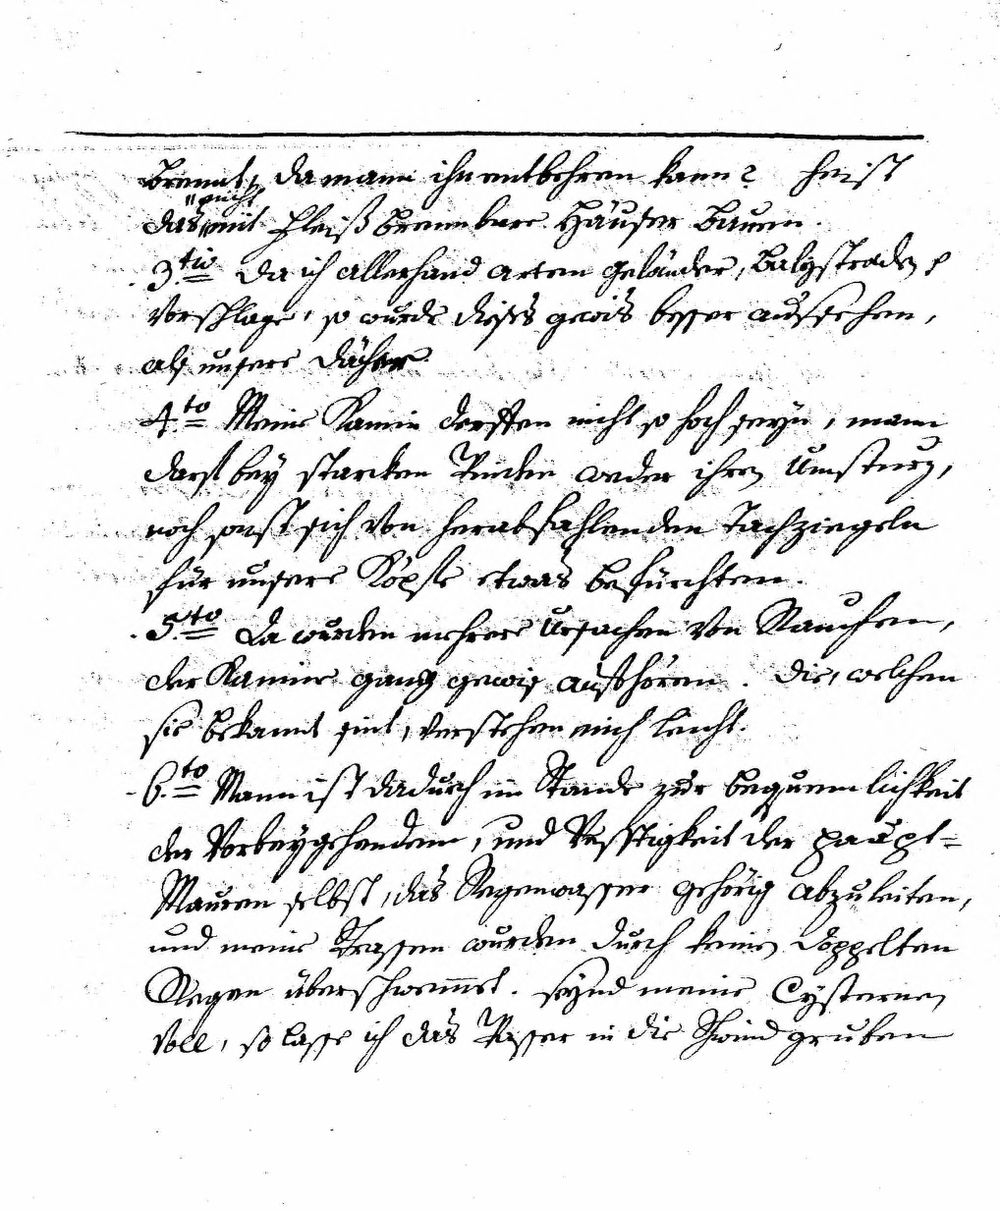 brennt, da mann ihn entbehren kann? heist
nicht
das mit Fleiß brennbare Häuser bauen.
3.tio Da ich allerhand arten geländer, Balystraden p
vorschlage, so wurde dieses gewis besser aussehen,
als unsere Dächer
4.to Meine Kamin derffen nicht so hoch seyn, mann
darf bey starcken Winden weder ihren Umsturz,
noch sonst sich von herabfahlenden Tachziegeln
für unsere Köpfe etwas befürchten.
5.to Da wurden mehrere Ursachen von Rauchen,
der Kamine ganz gewis aufhören. Die, welchen
sie bekannt sint, verstehen mich leicht.
6.to Mann ist dadurch im Stande zur bequemlichkeit
der Vorbeygehenden, und Vesstigkeit der Haupt=
Mauren selbst, das Regenwasser gehörig abzuleiten,
und meine Strassen wurden durch keinen doppelten
Regen überschwemmet. seynd meine Cysternen
voll, so lasse ich das Wasser in die Schwind gruben